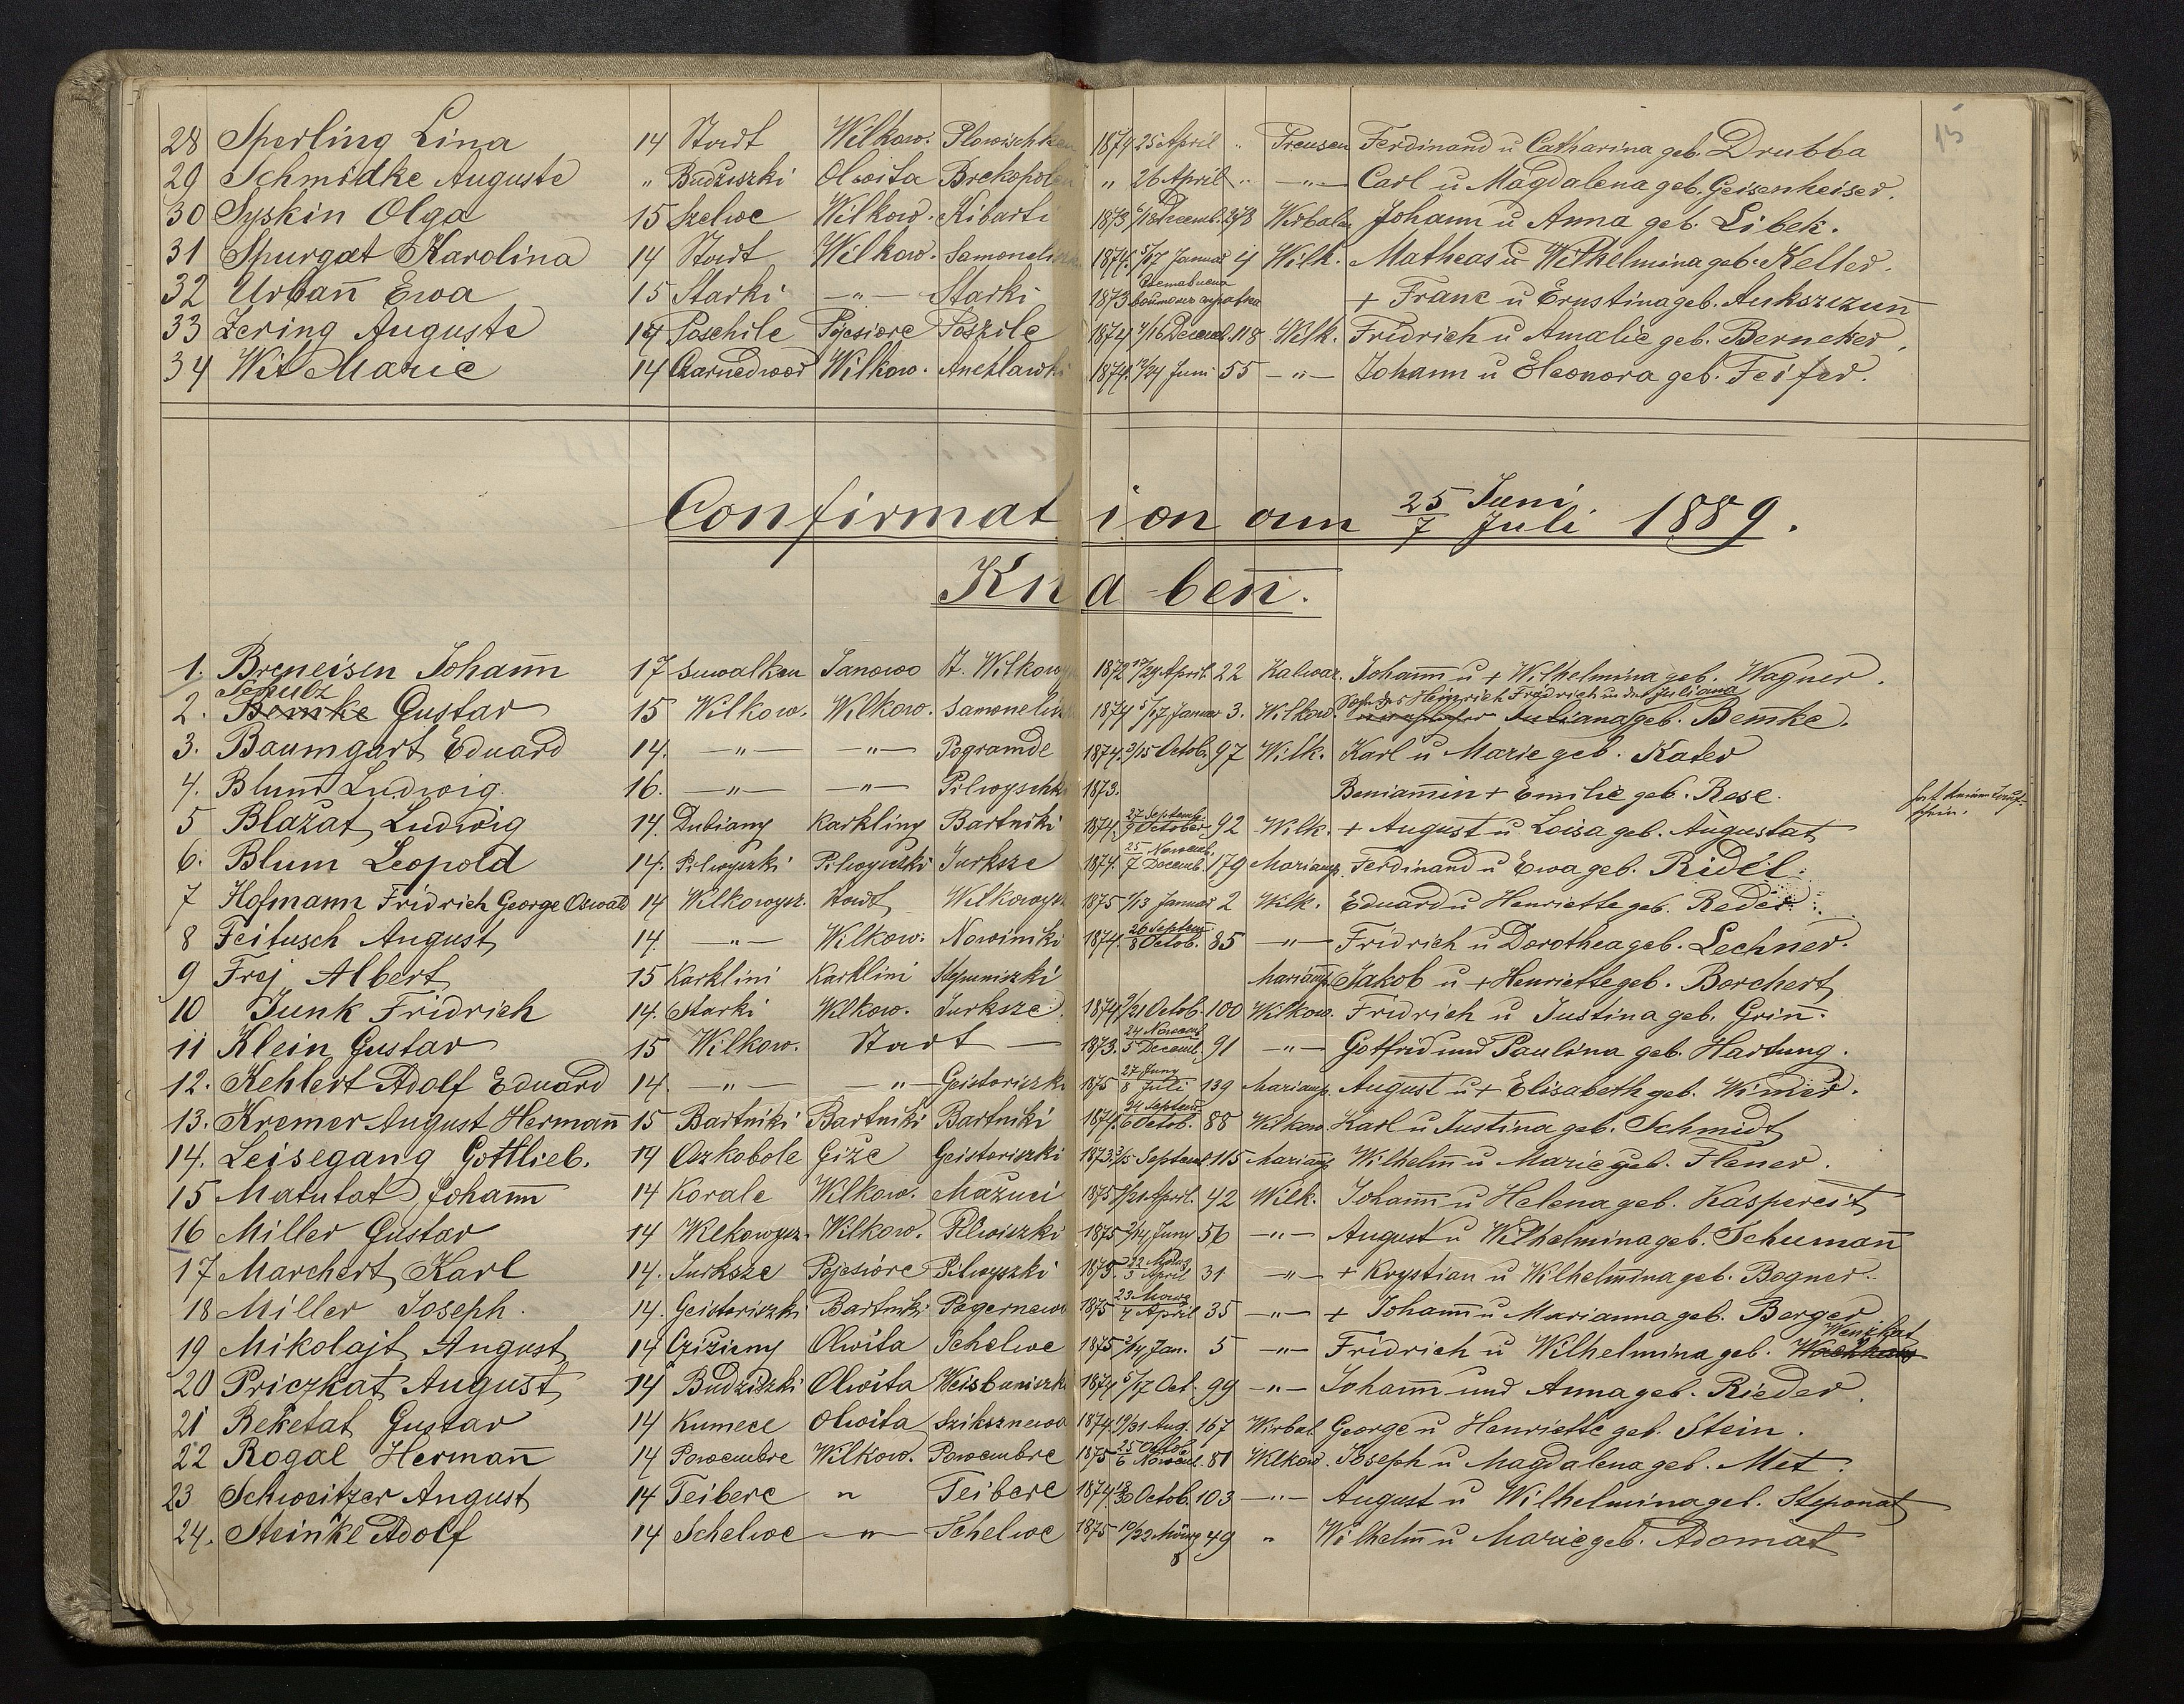 15
28 Sperling Lina 14 Stadt Wilkow. Plowischken 1874 25 April " Preusen Ferdinand u Catharina geb. Drubba
29 Schmidke Auguste " Budziszki Olwita Brekopolen " 26 April " —"— Carl u Magdalena geb. Geisenheiser.
30 Syskin Olga 15 Szelwe Wilkow. Kibarti 1873 6/18 Decemb. 278 Wirbalen Johann u Anna geb. Libek.
31 Spurgat Karolina 14 Stadt Wilkow. Samoneliszki 1874. 5/17 Januar 4 Wilk. Matheas u Wilhelmina geb. Keller.
32 Urbañ Ewa 15 Starki —"— Starki 1873 + Franz u Ernstina geb. Aukszczuñ
33 Zering Auguste 14 Poschile Pojesiore Poszile 1874 4/16 Decemb. 118 Wilk. Fridrich u Amalie geb. Berneker.
34 Wit Marie 14 Czarnedwor Wilkow. Anczlawki 1874. 12/24 Juni 55 —"— Johann u Eleonora geb. Feifer.
Confirmation am 25 Juni / 7 Juli 1889.
Knaben.
1. Breneisen Johañ 17 Suwalken Janowo St. Wilkowy 1872 17/29 April. 22 Kalwar. Johañ u + Wilhelmina geb. Wagner.
Schulz Sohn des Heinrich Fridrich und der Juliana
2. Bemke Gustav 15 Wilkow. Wilkow. Samoneliszki 1874 5/17 Januar 3. Wilkow. Juliana geb. Bemke.
3. Baumgart Eduard 14. —"— —"— Pogramde 1874. 3/15 Octob. 97 Wilk. Karl u Marie geb. Kater
4. Blum Ludwig 16. —"— —"— Pilwyschki 1873. Beniamin + Emilie geb. Rese. hat keinen Taufschein.
5 Blažat Ludwig 14. Dubiany Karkliny Bartniki 1874. 27 Septemb. / 9 October 92 Wilk. + August u Loisa geb. Augustat
6. Blum Leopold 14. Pilwyszki Pilwyszki Jurksze 1874. 25 Novemb. / 7 Decemb. 179 Mariamp. Ferdinand u Ewa geb. Ridel.
7 Hofmann Fridrich George Oswald 14 Wilkowysz. Stadt Wilkowysz 1875 1/13 Januar 2 Wilk. Eduard u Henriette geb. Reder
8 Feitusch August 14. —"— Wilkow. Nowiniki 1874. 26 Septem. / 8 Octob. 85 —"— Fridrich u Dorothea geb. Lechner.
9 Frej Albert 15 Karklini Karklini Stepuniszki Mariamp. Jakob u + Henriette geb. Borchert
10 Junk Fridrich 14. Starki Wilkow. Jurksze 1874 9/21 Octob. 100 Wilkow. Fridrich u Justina geb. Griñ.
11 Klein Gustav 15 Wilkow. Stadt — 1873. 24 Novemb. / 5 Decemb. 91 —"— Gotfrid und Paulina geb. Hartung.
12. Kehlert Adolf Eduard 14. —"— —"— Geistoriszki 1875 27 Juny / 8 Juli 139 Mariamp. August u + Elisabeth geb. Winder.
13. Kremer August Hermañ 15 Bartniki Bartniki Bartniki 1874. 24 Septem. / 6 Octob. 88 Wilkow. Karl u Justina geb. Schmidt
14. Leisegang Gottlieb. 14 Ozkobole Giže Geistoriszki 1873 3/15 Septemb. 115 Mariamp. Wilhelm u Marie geb. Flener.
15 Matutat Johañ 14 Korale Wilkow. Mažuci 1875 9/21 April. 42 Wilk. Johañ u Helena geb. Kaspereit
16 Miller Gustav 14 Wilkowysz. Wilkow. Pilwiszki 1875 2/14 Juny 56 —"— August u Wilhelmina geb. Schumañ
17 Marchert Karl 14. Jurksze Pojesiore Pilwyszki 1875. 22 März / 3 April 31 —"— + Krystian u Wilhelmina geb. Bogner.
18 Miller Joseph. 14. Geistoriszki Bartniki Pogernewo 1875 23 März / 4 April 35 —"— + Johañ u Marianna geb. Berger
Wenzkat
19 Mikolajt August 14 Czižiemy Olwita Schelwe 1875 2/14 Jan. 5 —"— Fridrich u Wilhelmina geb.
20 Priczkat August 14 Budziszki Olwita Weisbuniszki 1874 5/17 Oct. 99 —"— Johañ und Anna geb. Rieder.
21 Reketat Gustav 14 Kumece Olwita Sziksznewo 1874. 19/31 Aug. 167 Wirbal. George u Henriette geb. Stein.
22 Rogal Hermañ 14 Powembre Wilkow. Powembre 1875 25 Octob. / 6 Novemb. 81 Wilkow. Joseph u Magdalena geb. Met.
23 Schweitzer August 14 Teibere " Teibere 1874 18/30 Octob. 103 —"— August u Wilhelmina geb. Steponat
24. Steinke Adolf 14 Schelwe —"— Schelwe 1875 10/22 März 49 " Wilhelm u Marie geb. Adomat
8